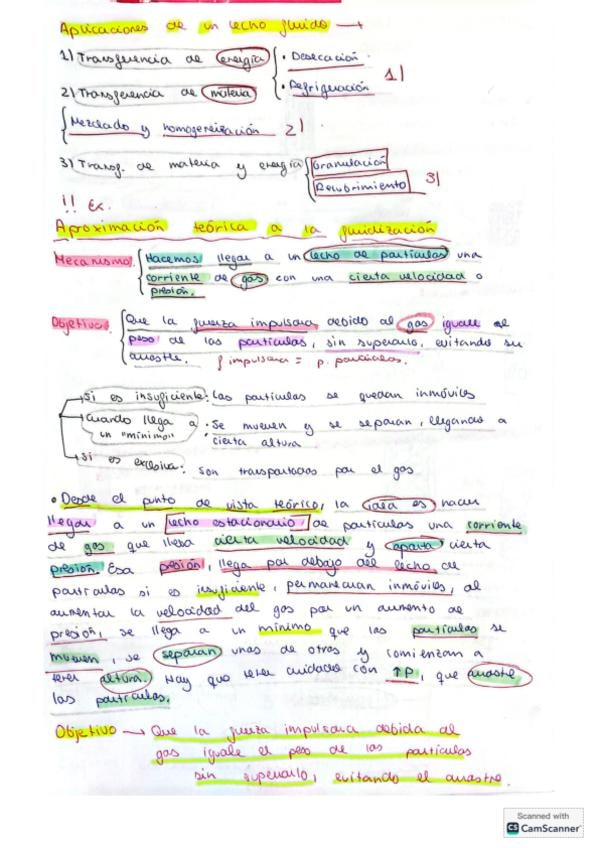 Aplicaciones de un lecho fluido →
1) Transferencia de energía { • Desecación.
• Refrigeración 1)
2) Transferencia de materia
{ Mezclado y homogeneización 2)
3) Transf. de materia y energía { Granulación
Recubrimiento 3)
!! Ex.
Aproximación teórica a la fluidización
Mecanismo. { Hacemos llegar a un lecho de partículas una
corriente de gas con una cierta velocidad o
presión.
Objetivo. { Que la fuerza impulsora debido al gas iguale el
peso de las partículas, sin superarlo, evitando su
arrastre. f impulsora = p. partículas.
Si es insuficiente: Las partículas se quedan inmóviles
Cuando llega a un "mínimo": Se mueven y se separan, llegando a
cierta altura
Si es excesiva: son transportadas por el gas
• Desde el punto de vista teórico, la idea es hacer
llegar a un lecho estacionario de partículas una corriente
de gas que lleva cierta velocidad y aporta cierta
presión. Esa presión, llega por debajo del lecho de
partículas si es insuficiente, permanecerán inmóviles, al
aumentar la velocidad del gas por un aumento de
presión, se llega a un mínimo que las partículas se
mueven, se separan unas de otras y comienzan a
tener altura. Hay que tener cuidado con ↑P, que arrastre
las partículas.
Objetivo → Que la fuerza impulsora debida al
gas iguale el peso de las partículas
sin superarlo, evitando el arrastre.
Scanned with
CS CamScanner